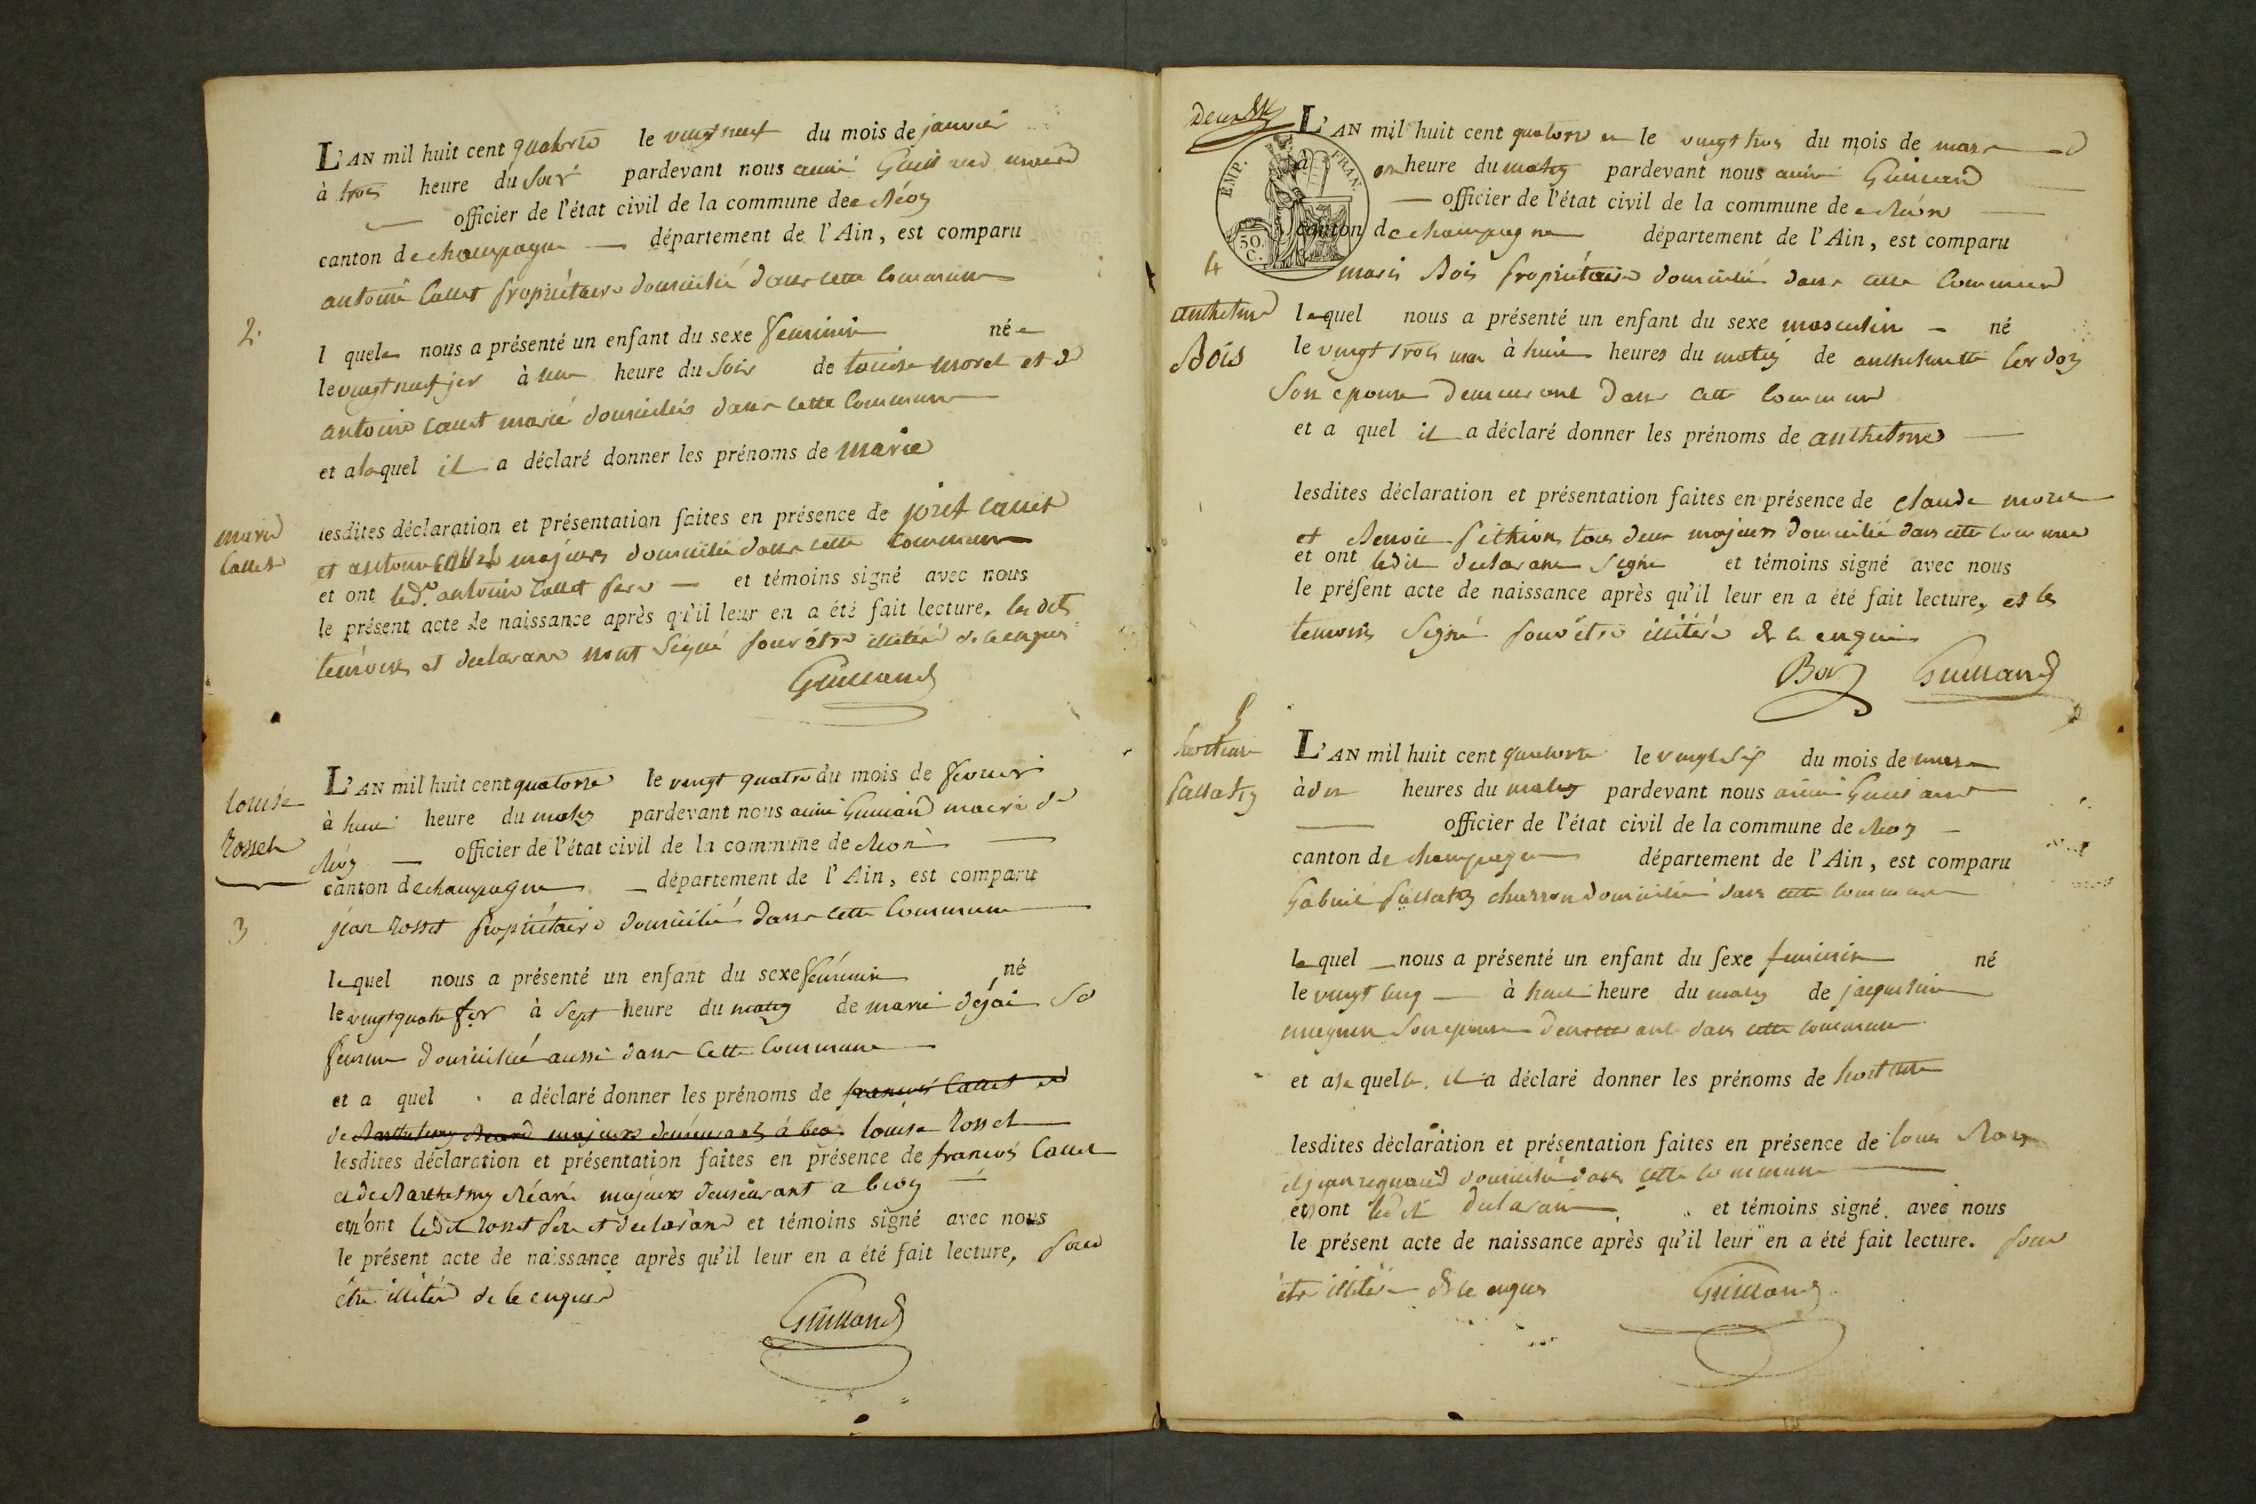 L'AN mil huit cent quatorze le vingt neuf du mois de janvier
à trois heure du soir pardevant nous aimé Guilland maire
officier de l'état civil de la commune de Béon
canton de champagne département de l'Ain, est comparu
antoine Callet propriétaire domicilié dans cette Commune
2.
l quel nous a présenté un enfant du sexe feminin née
le vingt neuf jer à une heure du soir de louise morel et de
antoine Callet marié domiciliés dans cette Commune
et a laquel il a déclaré donner les prénoms de marie
marie
Callet
lesdites déclaration et présentation faites en présence de josef Callet
et antoine Callet majeurs domicilié dans cette Commune
et ont led. antoine Callet pere et témoins signé avec nous
le présent acte de naissance après qu'il leur en a été fait lecture. les dits
temoins et declarant n'ont signé pour être illitéré de ce enquis
Guilland
louise
Rosset
3
L'AN mil huit cent quatorze le vingt quatre du mois de fevrier
à huit heure du matin pardevant nous aimé Guilland maire de
Béon officier de l'état civil de la commune de Béon
canton de champagne département de l'Ain, est comparu
jean Rosset propriétaire domicilié dans cette Commune
lequel nous a présenté un enfant du sexe féminin né
le vingt quatre fer à sept heure du matin de marie déjai sa
femme domiciliée aussi dans cette Commune
et a quel a déclaré donner les prénoms de francois Callet et
de Barthelemy majeurs demeurants à béo louise Rosset
lesdites déclaration et présentation faites en présence de francois Callet
et de Barthelmy majeurs demeurant a beon
et n'ont ledit Rosset pere et declarant et témoins signé avec nous
le présent acte de naissance après qu'il leur en a été fait lecture, pour
être illitéré de ce enquis
Guilland
Deux
EMP. FRAN.
50. C.
L'AN mil huit cent quatorze le vingt trois du mois de mars
à heure du matin pardevant nous aimé Guilland
officier de l'état civil de la commune de Béon
canton de champagne département de l'Ain, est comparu
4
maris Bois propriétaire domicilié dans cette Commune
anthelme
Bois
lequel nous a présenté un enfant du sexe masculin né
le vingt trois mar à huit heures du matin de anthelmette Cerdon
son epouse demeurant dans cette Commune
et a quel il a déclaré donner les prénoms de anthelme
lesdites déclaration et présentation faites en présence de claude morel
et Benoit Pithion tous deux majeurs domicilié dans cette commune
et ont ledit declarant signé et témoins signé avec nous
le présent acte de naissance après qu'il leur en a été fait lecture, et les
temoins signé pour être illitéré de ce enquis
Bois Guilland
5
hortense
L'AN mil huit cent quatorze le vingt six du mois de mars
à dix heures du matin pardevant nous aimé Guilland
officier de l'état civil de la commune de Béon
canton de champagne département de l'Ain, est comparu
Gabriel charron domicilié dans cette commune
lequel nous a présenté un enfant du sexe feminin né
le vingt cinq à huit heure du matin de jacqueline
son epouse demeurant dans cette commune
et a la quelle il a déclaré donner les prénoms de hortense
lesdites déclaration et présentation faites en présence de louis
et jean domicilié dans cette commune
et n'ont ledit declarant et témoins signé avec nous
le présent acte de naissance après qu'il leur en a été fait lecture. pour
être illitéré de ce enquis
Guilland